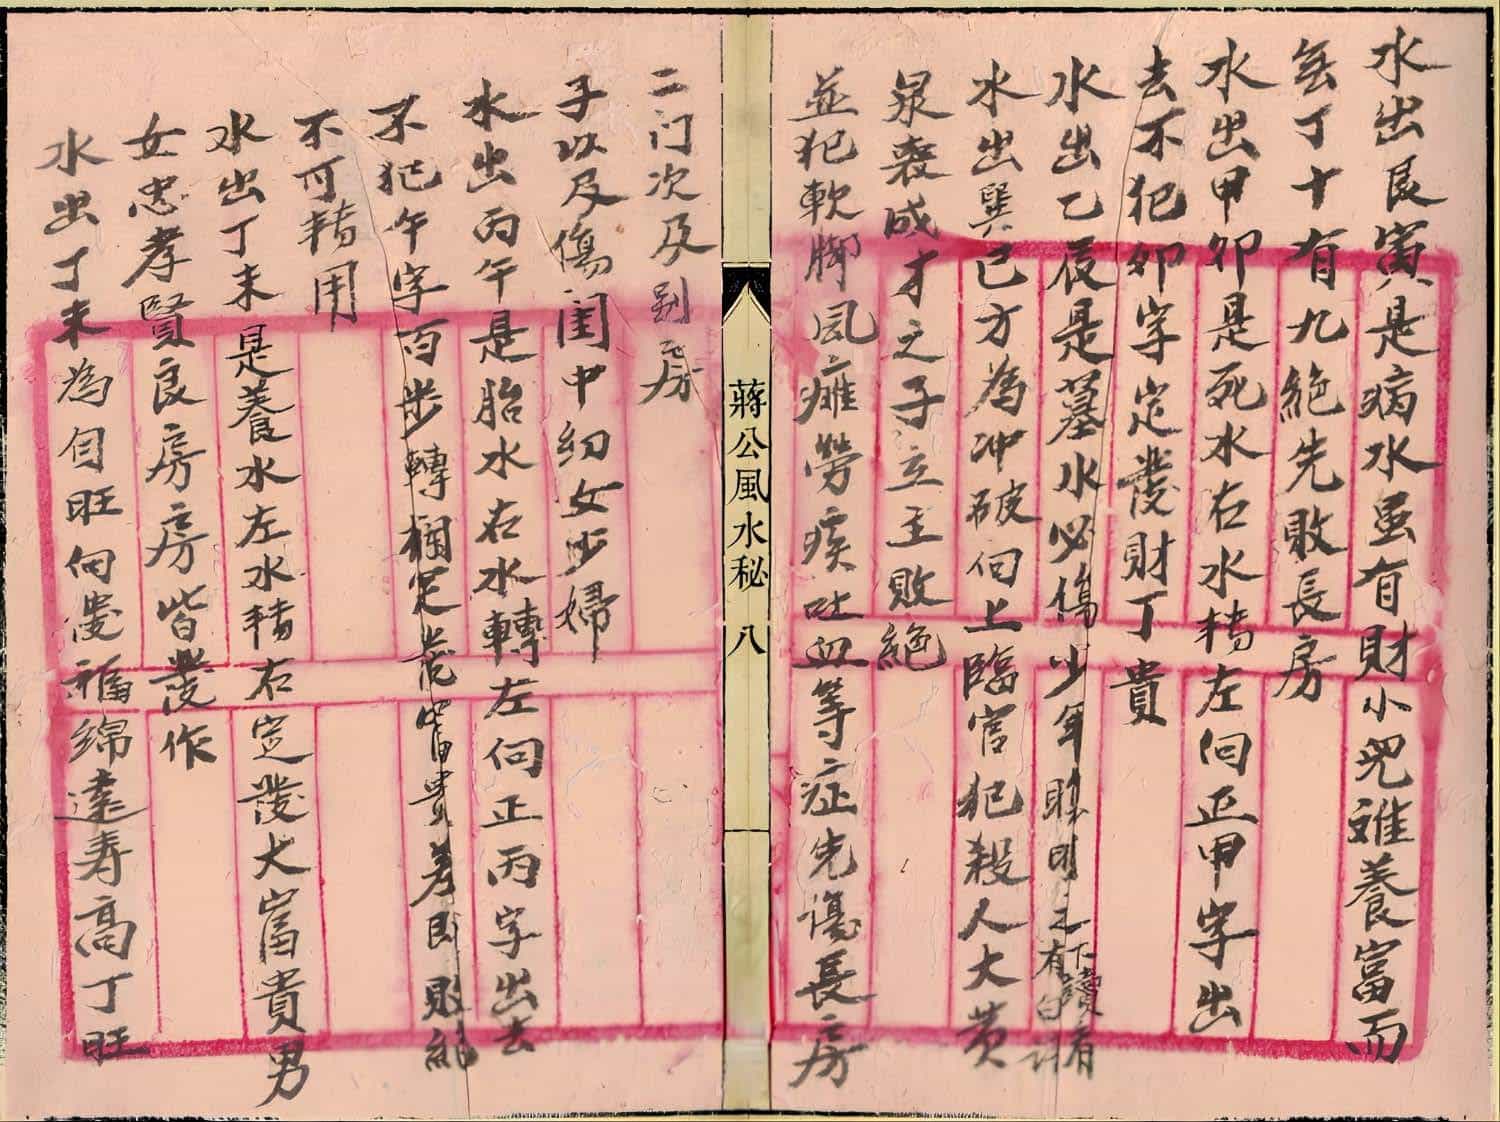 水出艮寅是病水虽有財小兒难養富而
無丁十有九絕先敗長房
水出甲卯是死水右水轉左向正甲字出
去不犯卯字定發財丁貴
水出乙辰是墓水必傷少年
下讀看
有白
水出巽巳方為冲破向上臨官犯殺人大黄
泉喪成才之子立主敗絕
並犯軟脚風癱勞疾吐血等症先傷長房
蔣公風水秘 八
二门次及别房
子以及傷闺中幼女少婦
水出丙午是胎水右水轉左向正丙字出去
不犯午字百步轉欄定發富貴差即敗絕
不可轉用
水出丁未是養水左水轉右定發大富貴男
女忠孝賢良房房皆發作
水出丁未為自旺向發福綿遠寿高丁旺